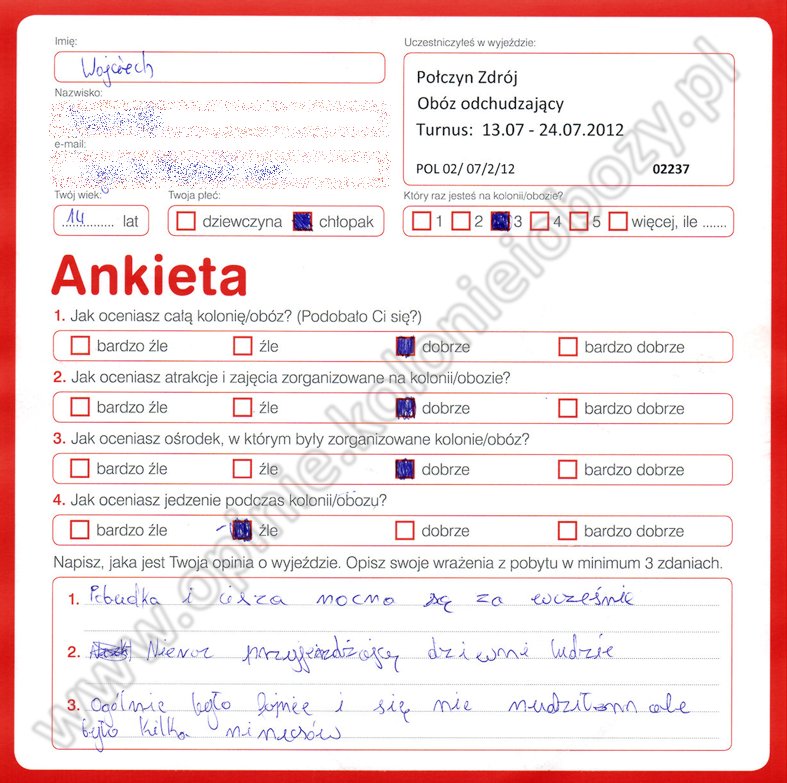 Imię:
Wojciech
Uczestniczyłeś w wyjeździe:
Połczyn Zdrój
Obóz odchudzający
Turnus: 13.07 - 24.07.2012
POL 02/ 07/2/12 02237
Nazwisko:
e-mail:
Twój wiek:
14 lat
Twoja płeć:
dziewczyna chłopak
Który raz jesteś na kolonii/obozie?
1 2 3 4 5 więcej, ile .......
Ankieta
1. Jak oceniasz całą kolonię/obóz? (Podobało Ci się?)
bardzo źle źle dobrze bardzo dobrze
2. Jak oceniasz atrakcje i zajęcia zorganizowane na kolonii/obozie?
bardzo źle źle dobrze bardzo dobrze
3. Jak oceniasz ośrodek, w którym były zorganizowane kolonie/obóz?
bardzo źle źle dobrze bardzo dobrze
4. Jak oceniasz jedzenie podczas kolonii/obozu?
bardzo źle źle dobrze bardzo dobrze
Napisz, jaka jest Twoja opinia o wyjeździe. Opisz swoje wrażenia z pobytu w minimum 3 zdaniach.
1. Pobudka i cisza nocna są za wcześnie
2. przyjeżdżają dziwni ludzie
3. Ogólnie było fajnie i się nie nudziłem ale
było kilka minusów
www.opinie.kolonieiobozy.pl